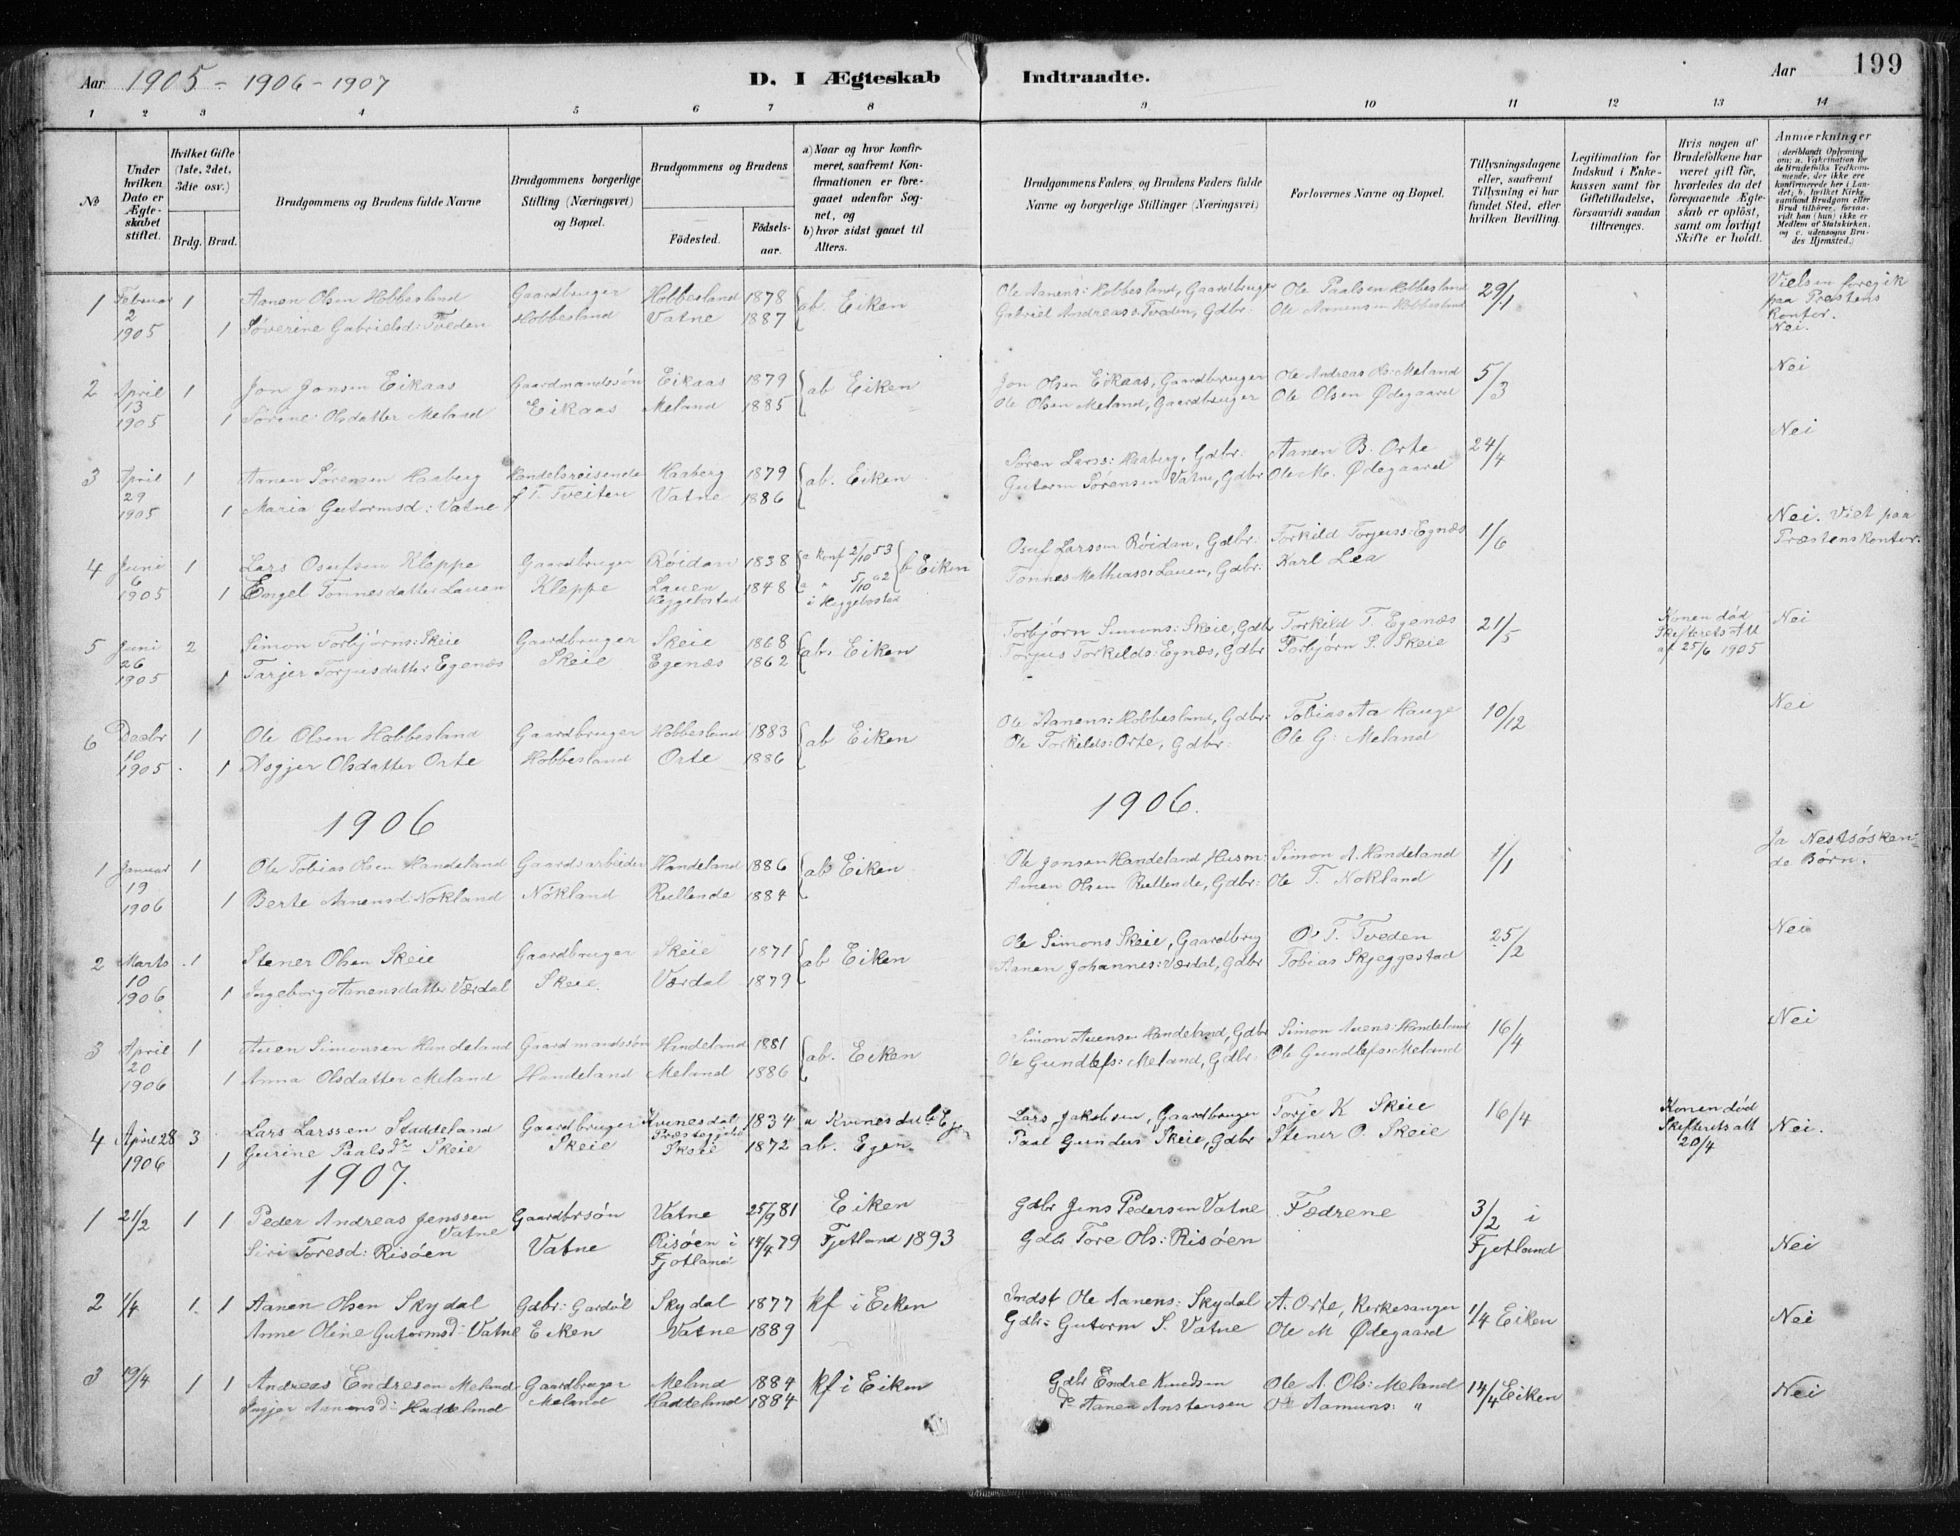 Aar 1905 - 1906 - 1907 D. I Ægteskab Indtraadte. Aar 199
1 2 3 4 5 6 7 8 9 10 11 12 13 14
No
Under hvilken Dato er Ægteskabet stiftet.
Hvilket Gifte (1ste, 2det, 3die osv.)
Brdg. Brud.
Brudgommens og Brudens fulde Navne
Brudgommens borgerlige Stilling (Næringsvei) og Bopæl.
Brudgommens og Brudens
Fødested. Fødselsaar.
a) Naar og hvor konfirmeret, saafremt Konfirmationen er foregaaet udenfor Sognet, og
b) hvor sidst gaaet til Alters.
Brudgommens Faders og Brudens Faders fulde Navne og borgerlige Stillinger (Næringsvei)
Forlovernes Navne og Bopæl.
Tillysningsdagene eller, saafremt Tillysning ei har fundet Sted, efter hvilken Bevilling.
Legitimation for Indskud i Enkekassen samt for Giftetilladelse, forsaavidt saadan tiltrænges.
Hvis nogen af Brudefolkene har været gift før, hvorledes da det foregaaende Ægteskab er opløst, samt om lovligt Skifte er holdt.
Anmærkninger (deriblandt Oplysning om: a. Vakcination for de Brudefolks Vedkommende, der ikke ere konfirmerede her i Landet; b. hvilket Kirkesamfund Brudgom eller Brud tilhører, forsaavidt han (hun) ikke er Medlem af Statskirken, og c. udensogns Brudes Hjemsted.)
1 Februar 1 Aanen Olsen Hobbesland Gaardbruger Hobbesland 1878 ab. Eiken Ole Aanens: Hobbesland, Gaardbruger Ole Paalsen Hobbesland 29/1 Vielsen foregik paa Prestens Kontor.
2 1905 1 Søverine Gabrielsd: Tveden Hobbesland Vatne 1887 Gabriel Andreass: Tveden, Gdbr: Ole Aanensen Hobbesland Nei.
2 April 1 Jon Jonsen Eikaas Gaardmandssøn Eikaas 1879 ab Eiken Jon Olsen Eikaas, Gaardbruger Ole Andreas Ols: Meland 5/3 Nei
13 1905 1 Sørine Olsdatter Meland Eikaas Meland 1885 Ole Olsen Meland, Gaardbruger Ole Olsen Ødegaard
3 April 1 Aanen Sørensen Haaberg Handelsreisende Haaberg 1879 ab. Eiken Søren Larss: Haaberg, Gdbr. Aanen B. Orte 24/4 Nei
29 1905 1 Maria Gutormsd: Vatne f T. Tveiten Vatne 1886 Gutorm Sørensen Vatne, Gdbr Ole M. Ødegaard
4 Juni 1 Lars Osufsen Kleppe Gaardbruger Røidan 1838 a konf 2/10 53 b Eiken Osuf Larssen Røidan, Gdbr: Torkild Torjuss: Egnæs 1/6 Nei. Viet paa Præstens kontor.
6 1905 1 Engel Tønnesdatter Lauen Kleppe Lauen Heggebostad 1848 a " 5/10 62 i Heggebostad Tønnes Mathiass: Lauen, Gdbr: Karl Lea
5 Juni 2 Simon Torbjørns: Skeie Gaardbruger Skeie 1868 ab. Eiken Torbjørn Simons: Skeie, Gdbr Torkild T. Egenæs 21/5 Konen død Skifteretsatt af 25/6 1905 Nei
26 1905 1 Tarjer Torjusdatter Egenæs Skeie Egenæs 1862 Torjus Torkilds: Egnæs, Gdbr Torbjørn S. Skeie
6 Decbr 1 Ole Olsen Hobbesland Gaardbruger Hobbesland 1883 ab Eiken Ole Aanens: Hobbesland, Gdbr: Tobias Aa Hauge 10/12 Nei
1905 1 Asgjer Olsdatter Orte Hobbesland Orte 1886 Ole Torkilds: Orte, Gdbr: Ole G: Meland
1906 1906.
1 Januar 1 Ole Tobias Olsen Handeland Gaardsarbeider Handeland 1886 ab Eiken Ole Jonsen Handeland Husm: Simon A. Handeland 1/1 Ja Nestsøskende Børn.
19 1906 1 Berte Aanensd Nøkland Nøkland Rullende 1884 Aanen Olsen Rullende, Gdbr: Ole T. Nøkland
2 Marts 1 Stener Olsen Skeie Gaardbruger Skeie 1871 ab Eiken Ole Simons Skeie, Gaardbrug O. T. Tveden 25/2 Nei
10 1906 1 Ingeborg Aanensdatter Værdal Skeie. Værdal 1879 Aanen Johannes: Værdal, Gdbr Tobias Skjeggestad
3 April 1 Auen Simonsen Handeland Gaardmandssøn Handeland 1881 ab. Eiken Simon Auensen Handeland, Gdbr Simon Auens: Handeland 16/4 Nei
20 1906 1 Anna Olsdatter Meland Handeland Meland 1886 Ole Gundlefs: Meland, Gdbr: Ole Gundlefs: Meland
4 April 28 3 Lars Larssen Staddeland Gaardbruger Kvinesdal Præstegjeld 1834 a Kvinesdal Lars Jakobsen, Gaardbruger Torje K Skeie 16/4 Konen død Skifteretsatt 20/4 Nei.
1906 1 Gurine Paalsdr Skeie Skeie Skeie 1872 ab. Egen Paal Gundes Skeie, Gdbr Stener O. Skeie
1907.
1 21/2 1 1 Peder Andreas Jenssen Vatne Gaardbrsøn Vatne 25/9 81 Eiken Gdbr Jens Pedersen Vatne Fædrene 3/2 i Fjotland
Siri Toresd: Risøen Vatne Risøen i Fjotland 14/4 79 Fjotland 1893 Gdbr Tore Ols: Risøen Nei
2 1/4 1 1 Aanen Olsen Skydal Gdbr: Gardøl Skydal 1877 kf i Eiken Indst Ole Aanens: Skydal A. Orte, Kirkesanger 1/4 Eiken
Anne Oline Gutormsd: Vatne Eiken Vatne 1889 Gdbr: Gutorm S. Vatne Ole M Ødegaard Nei
3 19/4 1 1 Andreas Endresen Meland Gaardbruger Meland 1884 kf i Eiken Gdbr Endre Knudsen Ole A. Ols: Meland 14/4 Eiken Nei
Aanensd: Haddeland Meland Haddeland 1884 Do Aanen Anstensen